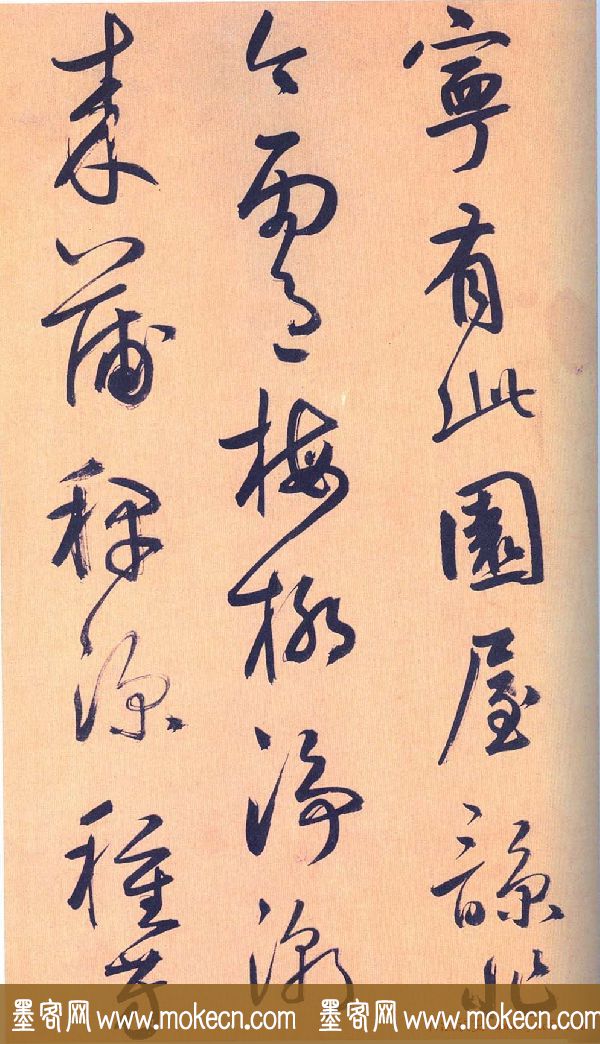 寧有此園屋諒非
今雨過梅柳淨潮
來蒲稗深種芳
墨客网 www.mokecn.com 墨客网 www.mokecn.com